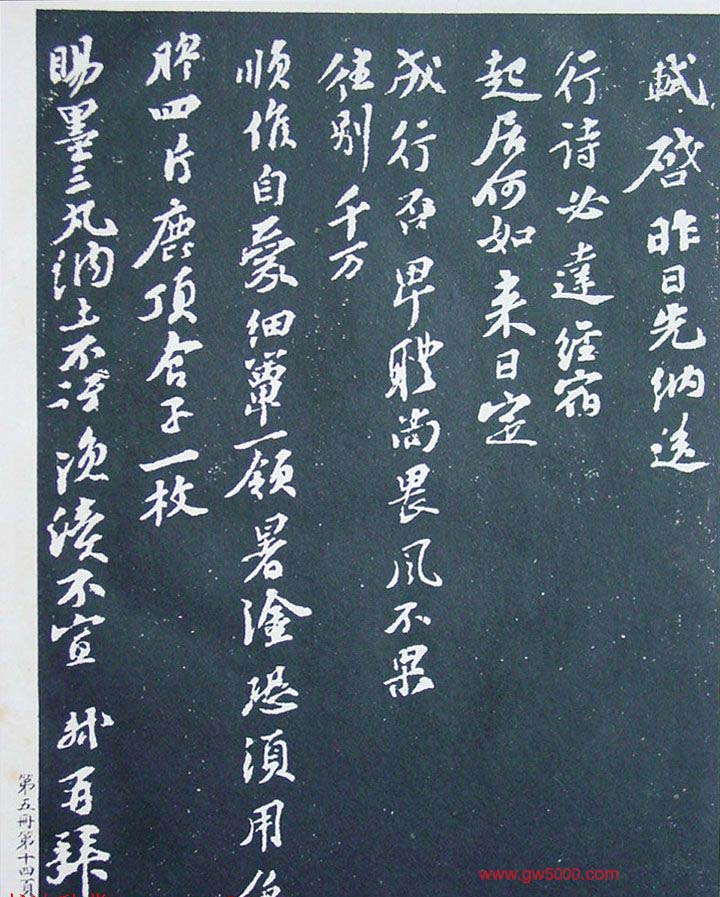 軾啓昨日先納送
行詩必達經宿
起居何如来日定
成行否卑體尚畏風不果
往別千万
順候自愛細簟一領暑塗恐須用
膠四片鹿頂合子一枚
賜墨三丸納上不訝瀆不宣 軾再拜
第五冊第十四頁
www.gw5000.com